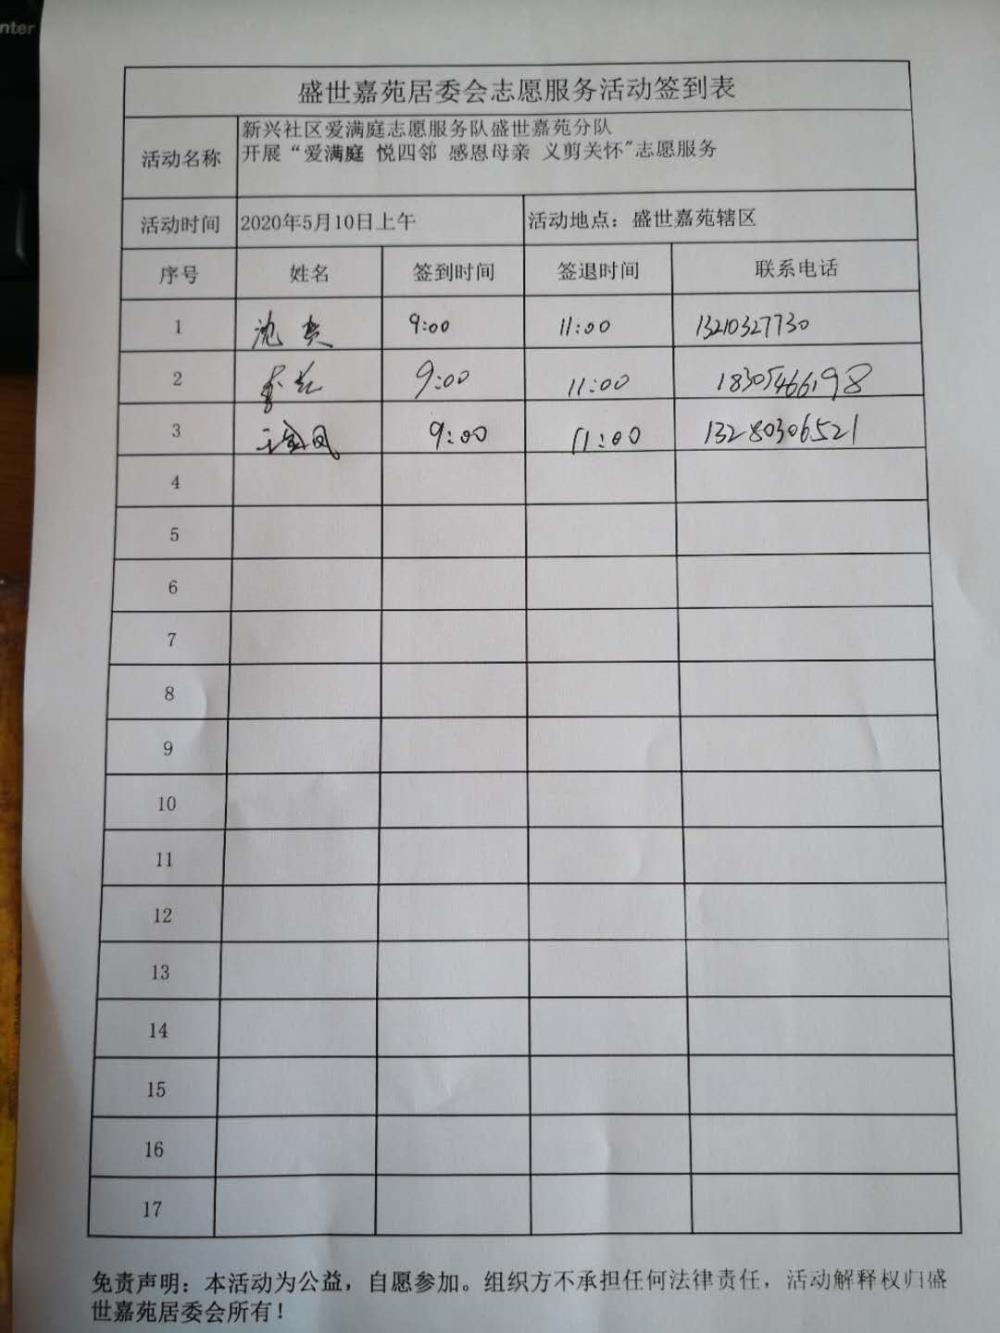 nter
盛世嘉苑居委会志愿服务活动签到表
活动名称
新兴社区爱满庭志愿服务队盛世嘉苑分队
开展“爱满庭 悦四邻 感恩母亲 义剪关怀”志愿服务
活动时间 2020年5月10日上午 活动地点：盛世嘉苑辖区
序号 姓名 签到时间 签退时间 联系电话
1 9:00 11:00 13210327730
2 9:00 11:00 18305466198
3 9:00 11:00 13280306521
4
5
6
7
8
9
10
11
12
13
14
15
16
17
免责声明：本活动为公益，自愿参加。组织方不承担任何法律责任，活动解释权归盛
世嘉苑居委会所有！